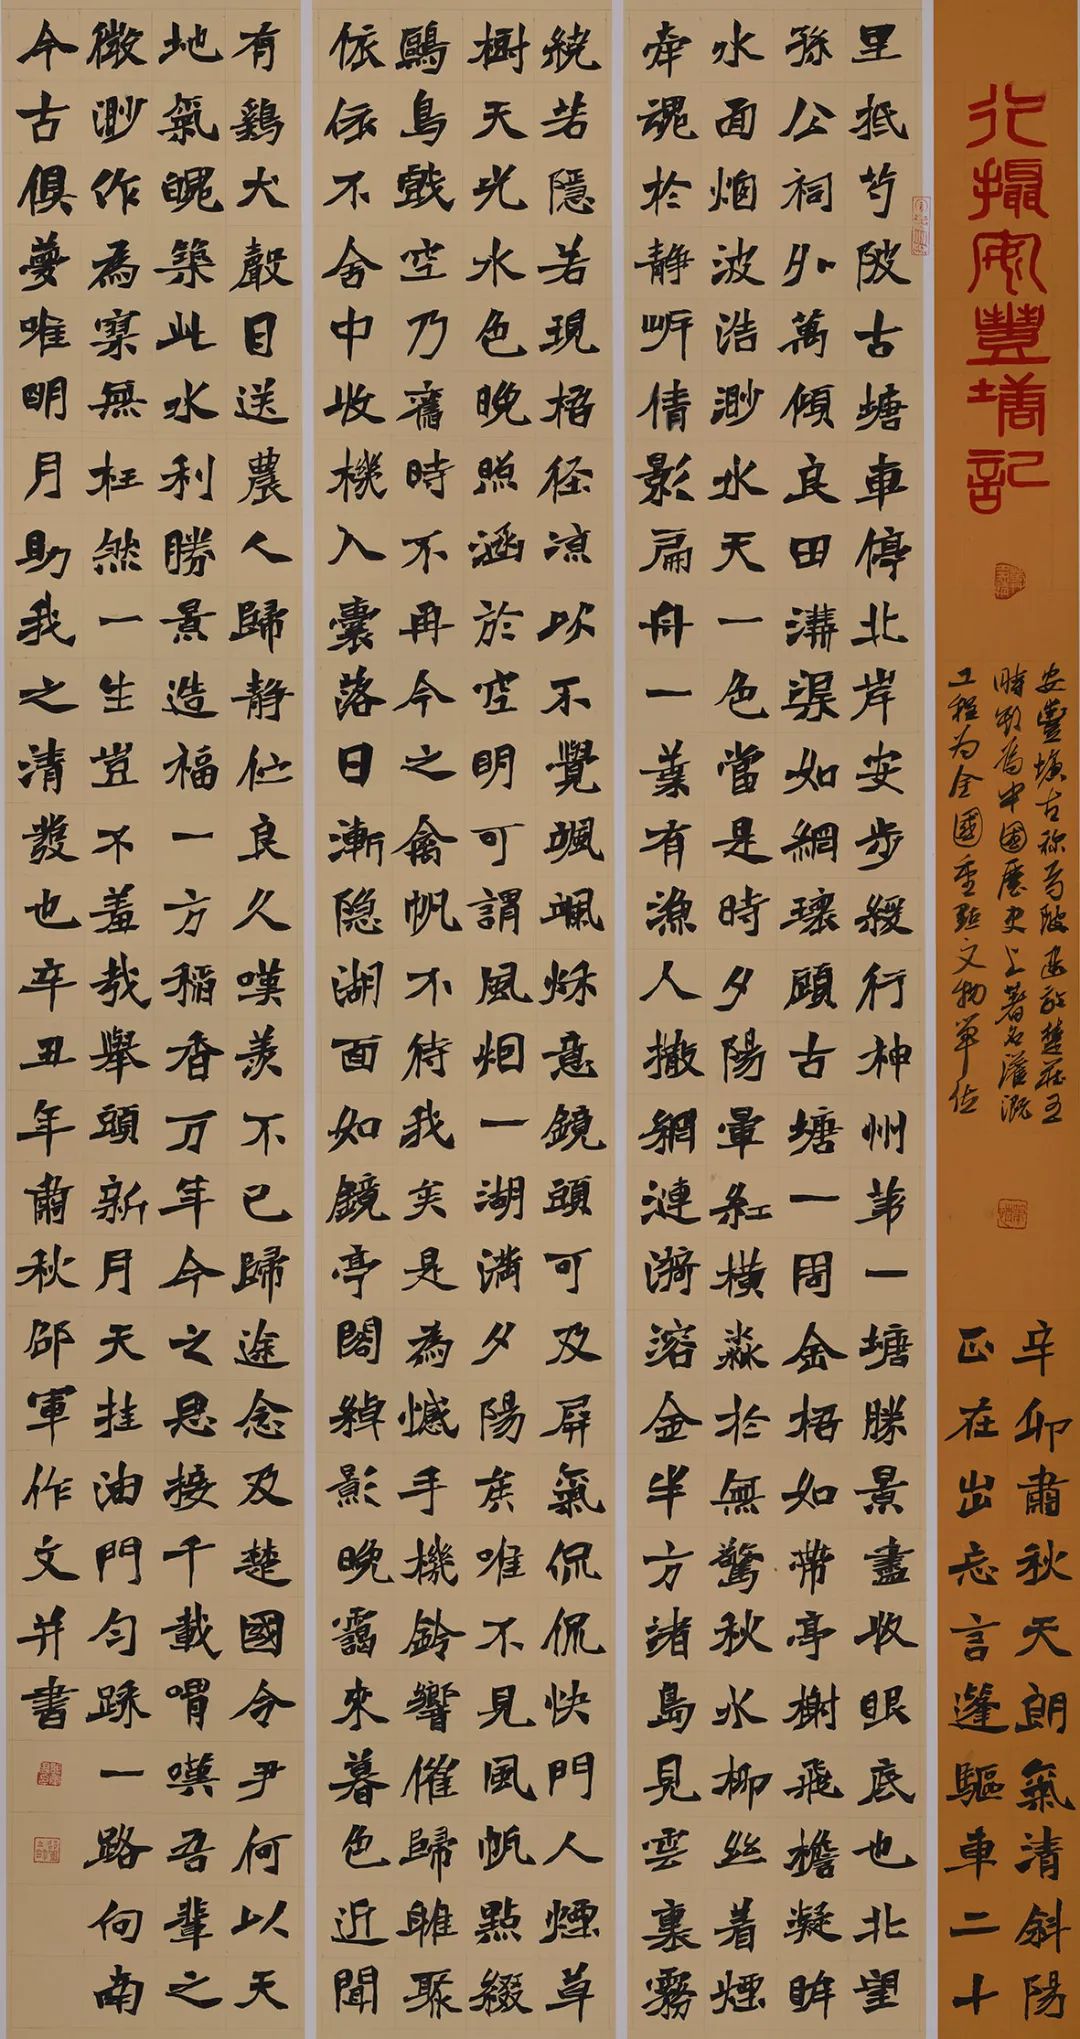 行攝安豐塘記
安豐塘古称芍陂建於楚莊王
時期為中國歷史上著名灌溉
工程为全國重點文物單位
辛卯肅秋天朗氣清斜陽
正在出忘言蓬驅車二十
里抵芍陂古塘車停北岸安步緩行神州第一塘勝景盡收眼底也北望
孫公祠外萬傾良田溝渠如網環顧古塘一周金梧如帶亭榭飛檐凝眸
水面烟波浩渺水天一色當是時夕陽暈紅橫淼於無驚秋水柳絲着煙
牽魂於靜听倩影扁舟一葉有漁人撒網漣漪溶金半方諸島見雲裏霧
繞若隱若現梧径凉以不覺颯颯秌意鏡頭可及屏氣侃侃快門人煙草
樹天光水色晚照涵於空明可謂風烟一湖滿夕陽矣唯不見風帆點綴
鷗鳥戲空乃舊時不再今之禽帆不待我矣是為憾手機鈴響催歸雖聚
依依不舍中收機入囊落日漸隐湖面如鏡亭閣綽影晚靄來暮色近聞
有鷄犬聲目送農人歸静伫良久嘆羡不已歸途念及楚國令尹何以天
地氣魄築此水利勝景造福一方稲香万年今之思接千載喟嘆吾輩之
微渺作為寀無枉然一生豈不羞哉舉頭新月天挂油門勻踩一路向南
今古俱夢唯明月助我之清發也辛丑年肅秋邵軍作文并書